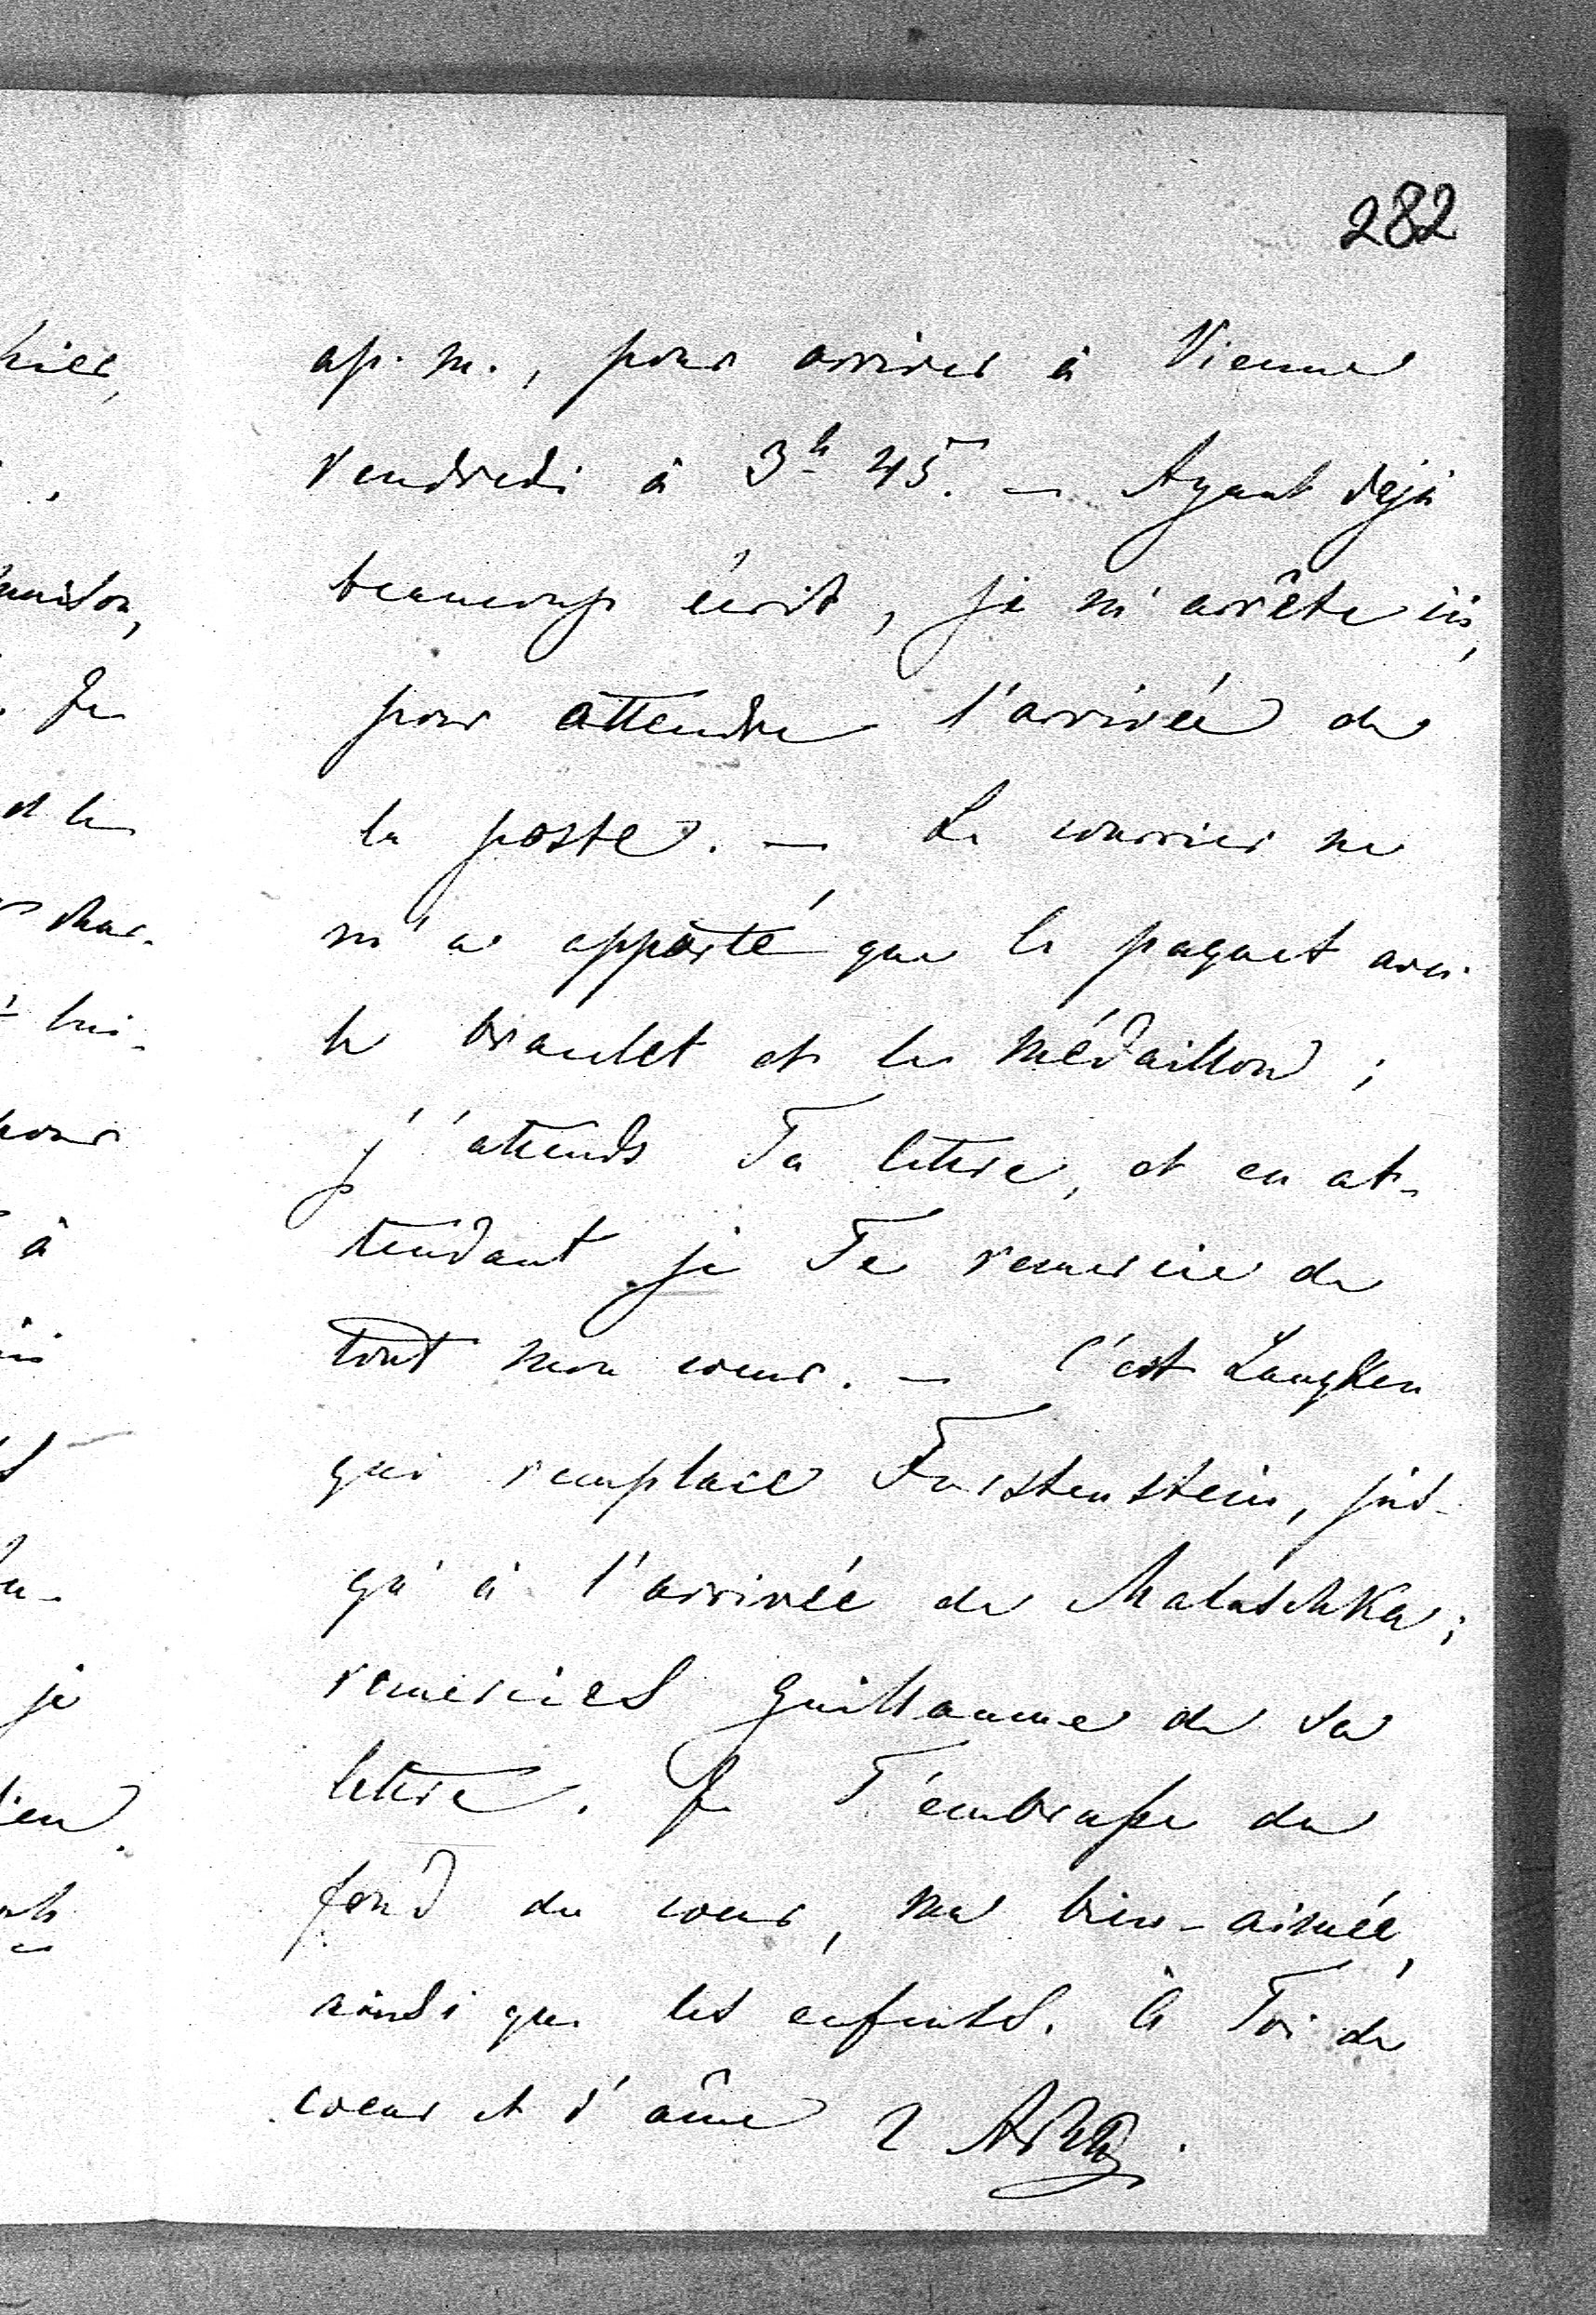 282
ap. m., pour arriver à Vienne
Vendredi à 3h 45. — Ayant déjà
beaucoup écrit, je m'arrête ici,
pour attendre l'arrivée de
la poste. — Le courrier ne
m'a apporté que le paquet avec
le bracelet et le médaillon;
j'attends Ta lettre, et en at-
tendant je Te remercie de
tout mon coeur. — C'est
qui remplace Furstenstein, jus-
qu'à l'arrivée de Mataschka;
remercies Guillaume de sa
lettre. Je T'embrasse du
fond du coeur, ma bien-aimée,
ainsi que les enfants. à Toi de
coeur et d'âme
je
à